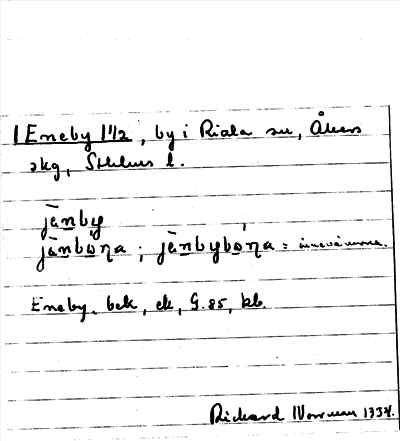 Eneby 1 1/2, by i Riala sn, Åkers
skg, Sthlms l.
jēnby
jēnbōna; jēnbybōna = innevånarna.
Eneby, bek, ek, G. 85, kb.
Rickard Norrman 1934.